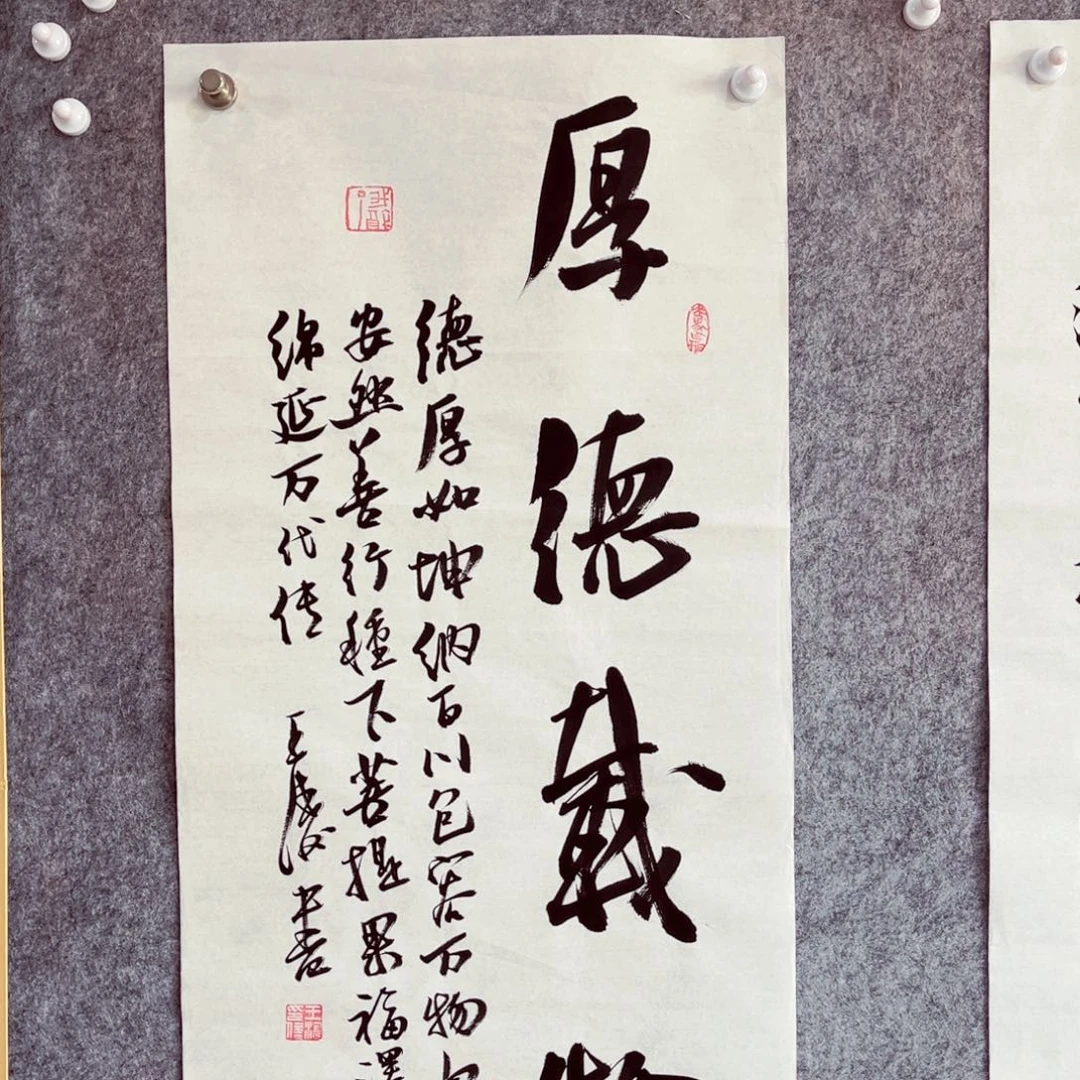 厚德載
德厚如坤纳百川包容万物
安然善行種下菩提果福澤
绵延万代传 王 书